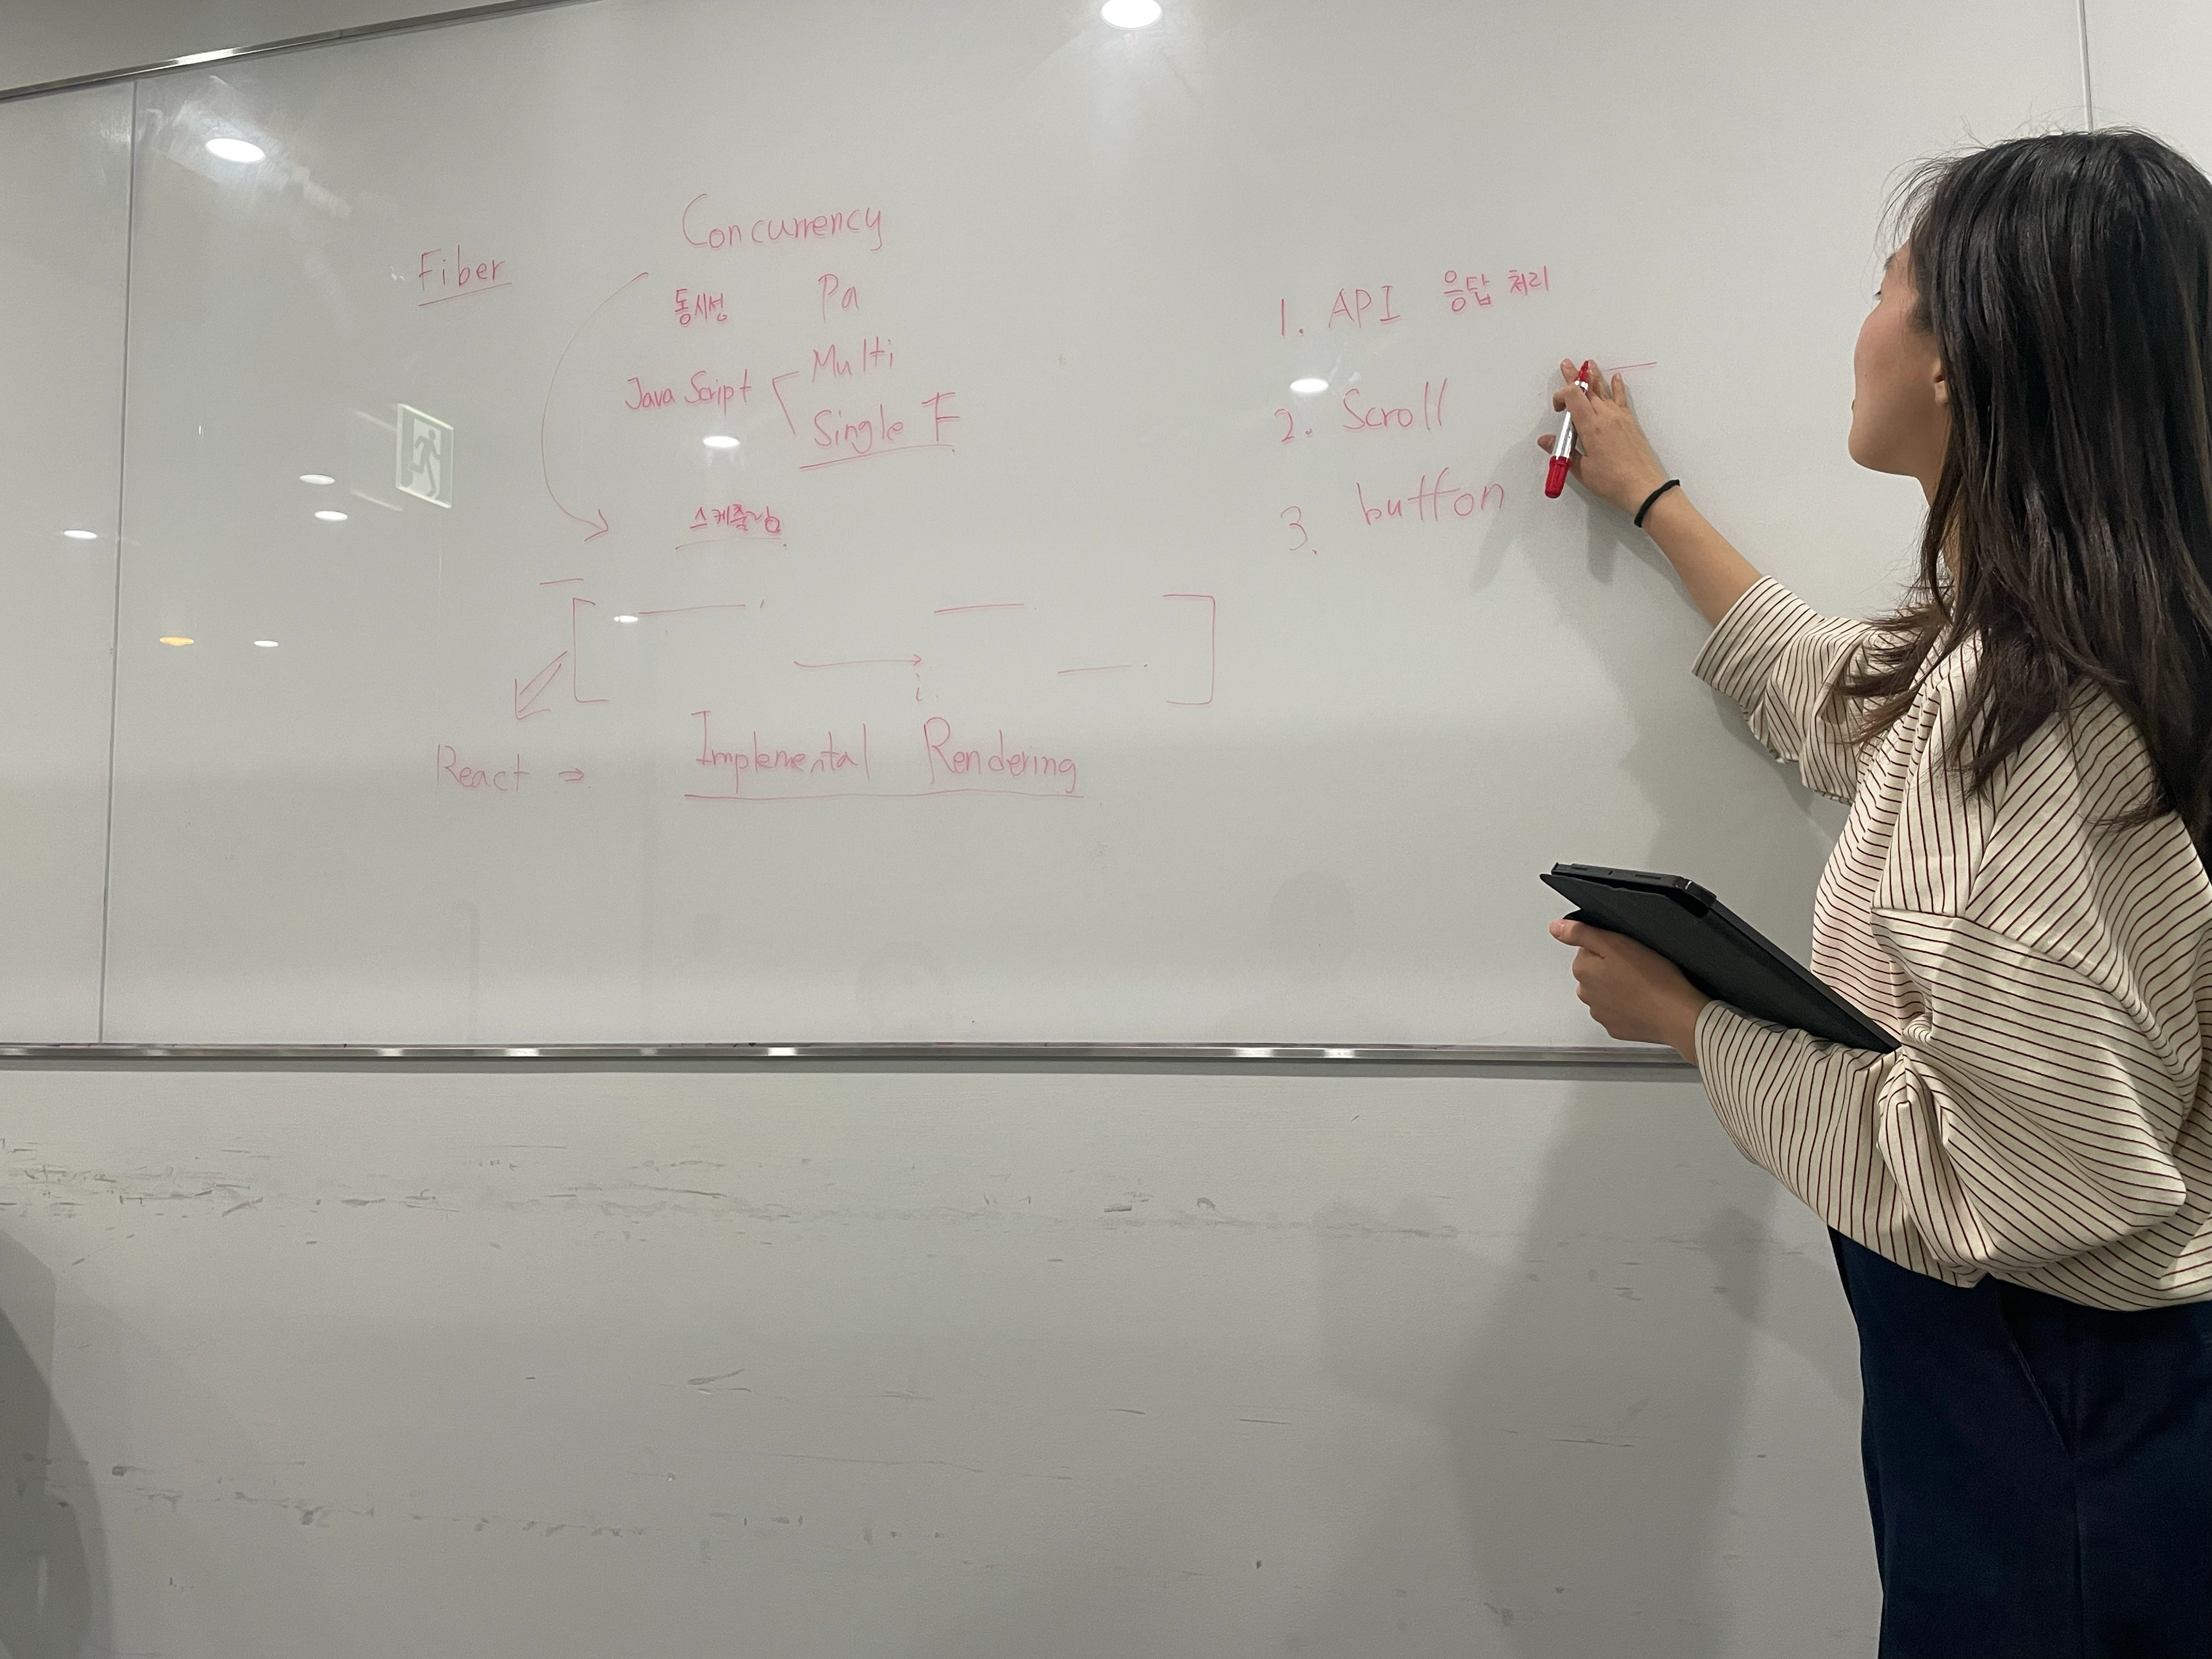 Fiber
Concurrency
동시성 Pa
JavaScript Multi
Single F
스케쥴링
i.
React ⇒ Implemental Rendering
1. API 응답 처리
2. Scroll
3. button